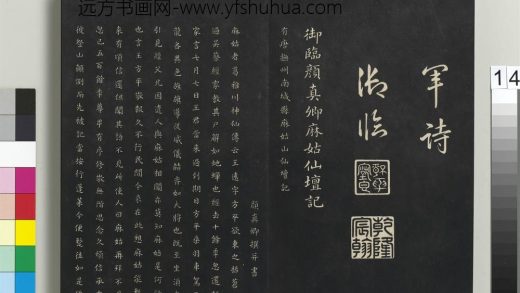 远方书画网-www.yfshuhua.com
軍詩
御臨
乾隆宸翰
御臨顏真卿麻姑仙壇記
有唐撫州南城縣麻姑山仙壇記
顏真卿撰并書
麻姑者葛稚川神仙傳云王遠字方平欲東之括蒼
過吳蔡經家教其尸解如蛇蟬也經去十餘年忽還
家言七月七日王君當來過到期日方平乘羽車駕
龍各異色旌旗導從威儀赫弈如大將也既至坐須
引見經父兄因遣人與麻姑相聞亦莫知麻姑是何
也言王方平敬報久不行民間今來在此想麻姑能
來有頃信還但聞其語不見所使人曰麻姑再拜不
忽已五百餘年尊卑有序修敬無階思念久煩信承
彼登山顛倒而先被記當按行蓬萊今便暫往如是
14